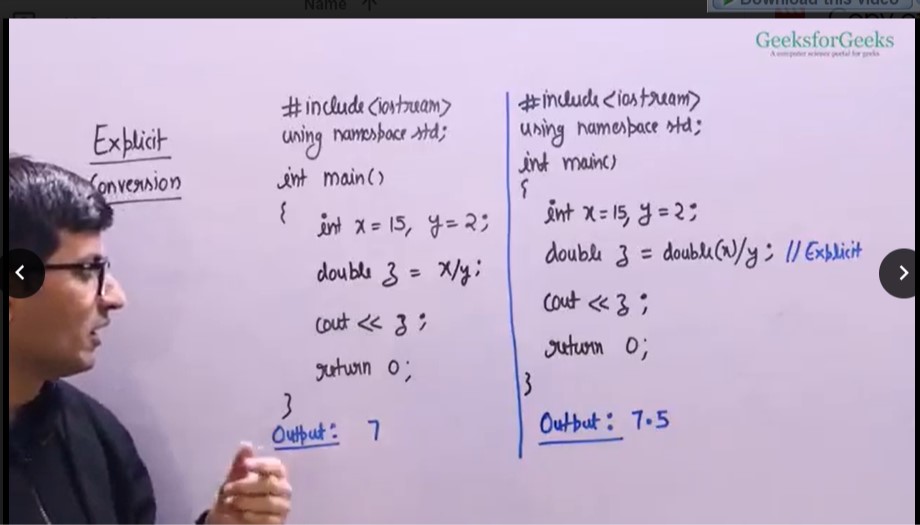 Name ↑
Download this video
GeeksforGeeks
A computer science portal for geeks
Explicit
Conversion
#include <iostream>
using namespace std;
int main()
{
int x = 15, y = 2;
double z = x/y;
cout << z;
return 0;
}
Output: 7
#include <iostream>
using namespace std;
int main()
{
int x = 15, y = 2;
double z = double(x)/y; //Explicit
cout << z;
return 0;
}
Output: 7.5